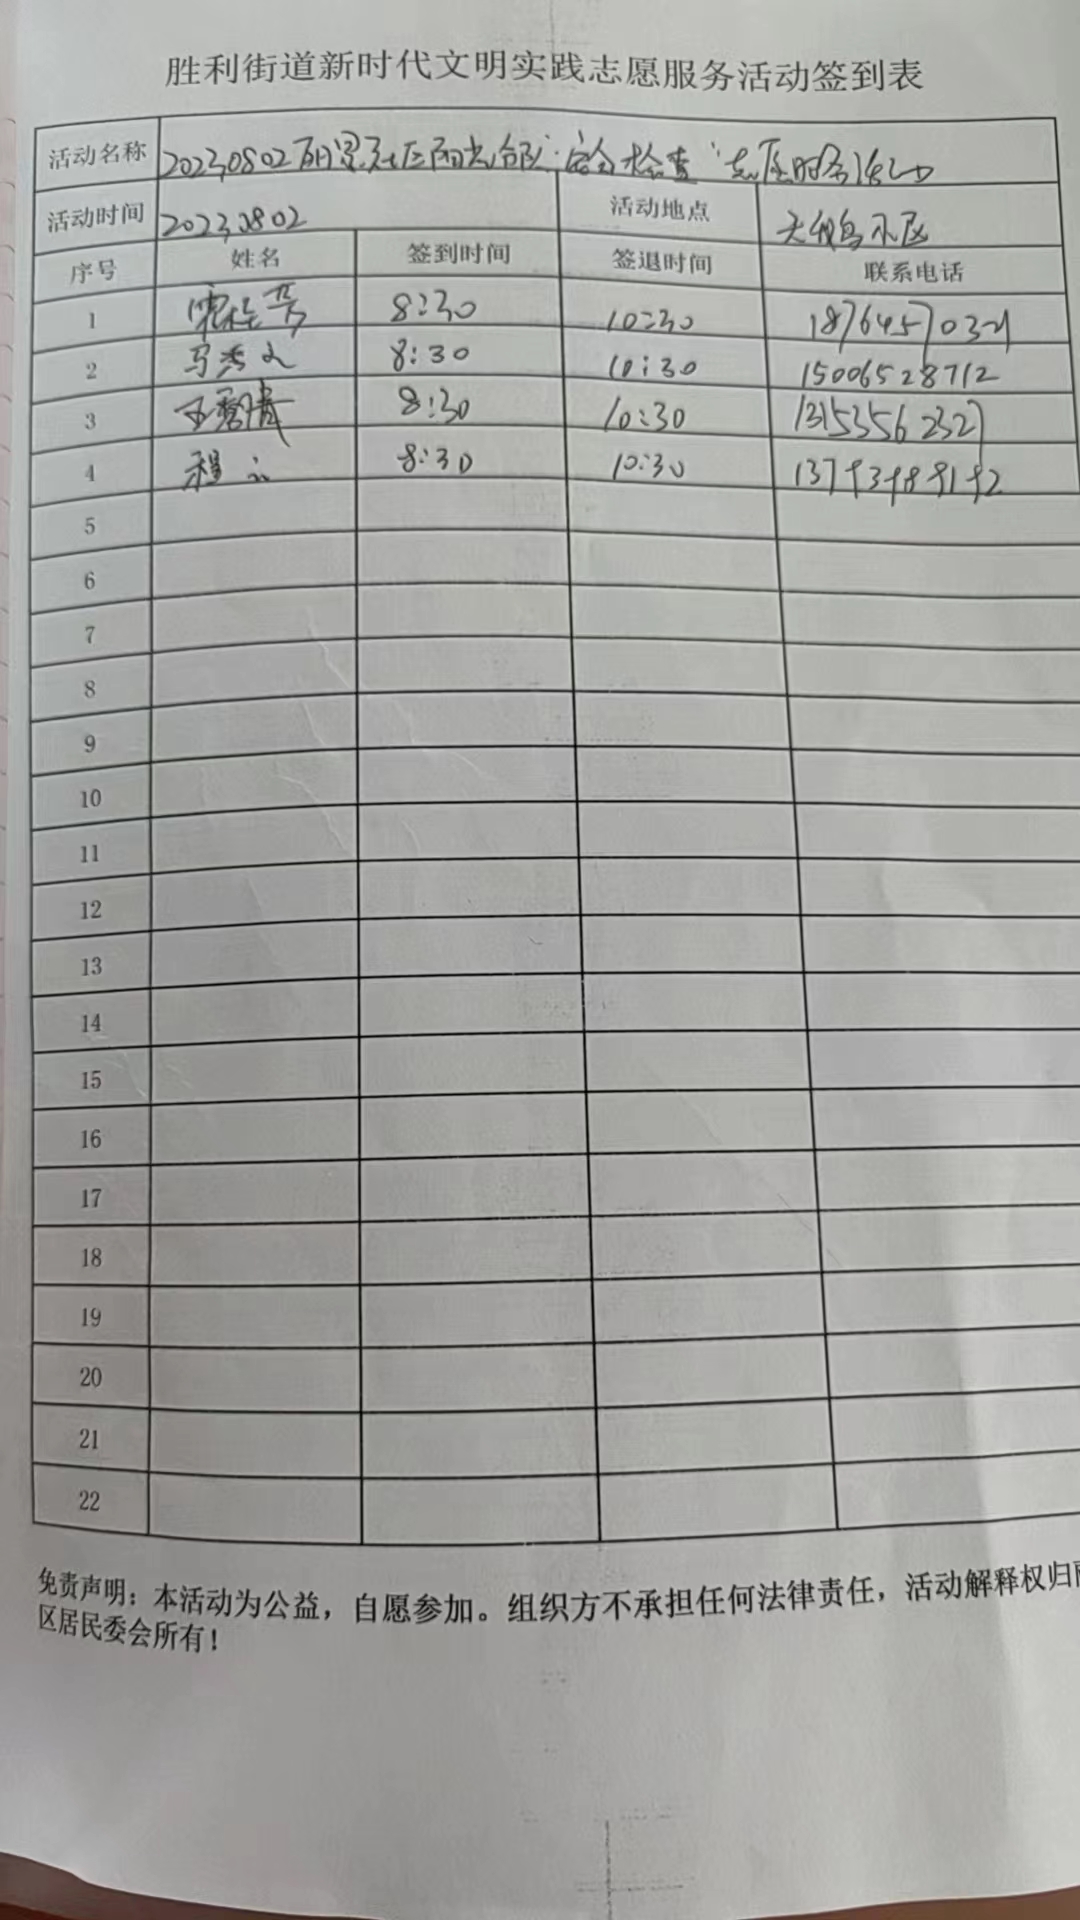 胜利街道新时代文明实践志愿服务活动签到表
活动名称 20230802丽景社区阳光部队"安全检查"志愿服务活动
活动时间 20230802 活动地点 天鹅小区
序号 姓名 签到时间 签退时间 联系电话
1 8:30 10:30
2 马秀文 8:30 10:30 15006528712
3 王秀清 8:30 10:30 13153562327
4 程 8:30 10:30 13793989192
5
6
7
8
9
10
11
12
13
14
15
16
17
18
19
20
21
22
免责声明：本活动为公益，自愿参加。组织方不承担任何法律责任，活动解释权归
区居民委会所有！